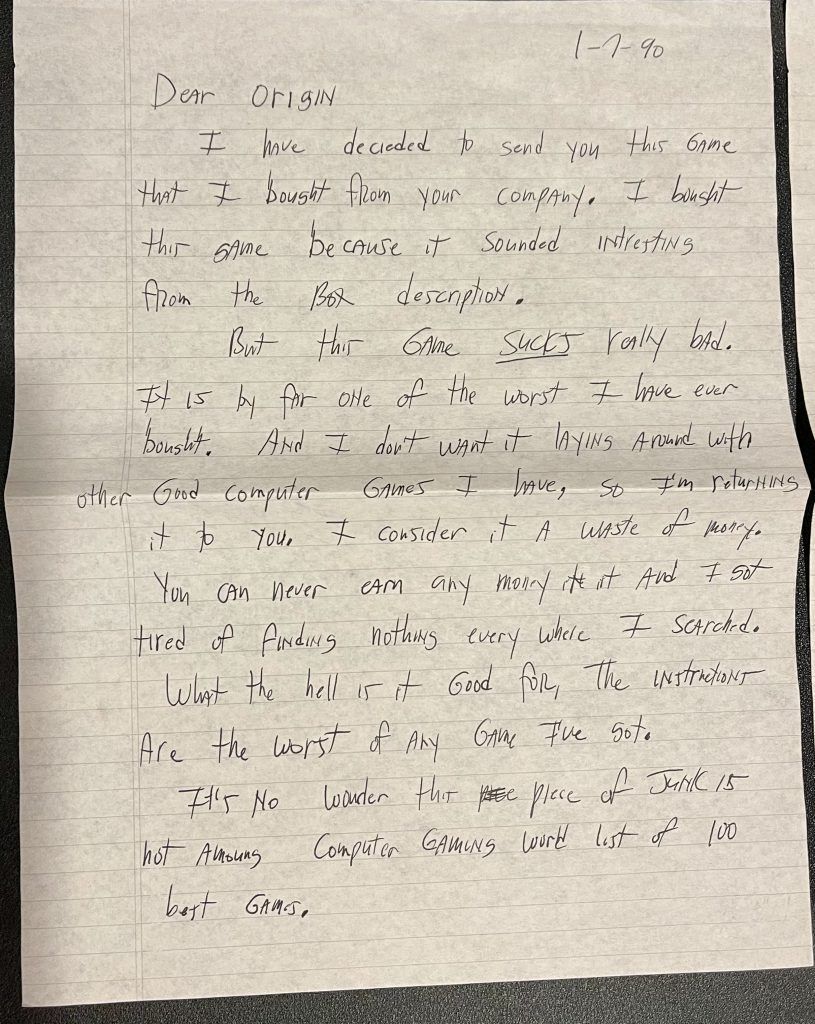 1-7-90
Dear Origin
I have decieded to send you this Game
that I bought from your company. I bought
this game because it sounded intresting
from the Box description.
But this Game sucks really bad.
It is by far one of the worst I have ever
bought. And I don't want it laying around with
other Good computer Games I have, so I'm returning
it to you. I consider it a waste of money.
You can never earn any money it And I got
tired of finding nothing every where I searched.
What the hell is it Good for, The instructions
Are the worst of Any Game I've got.
It's No wonder this piece of Junk is
not Amoung Computer Gaming World list of 100
best Games.